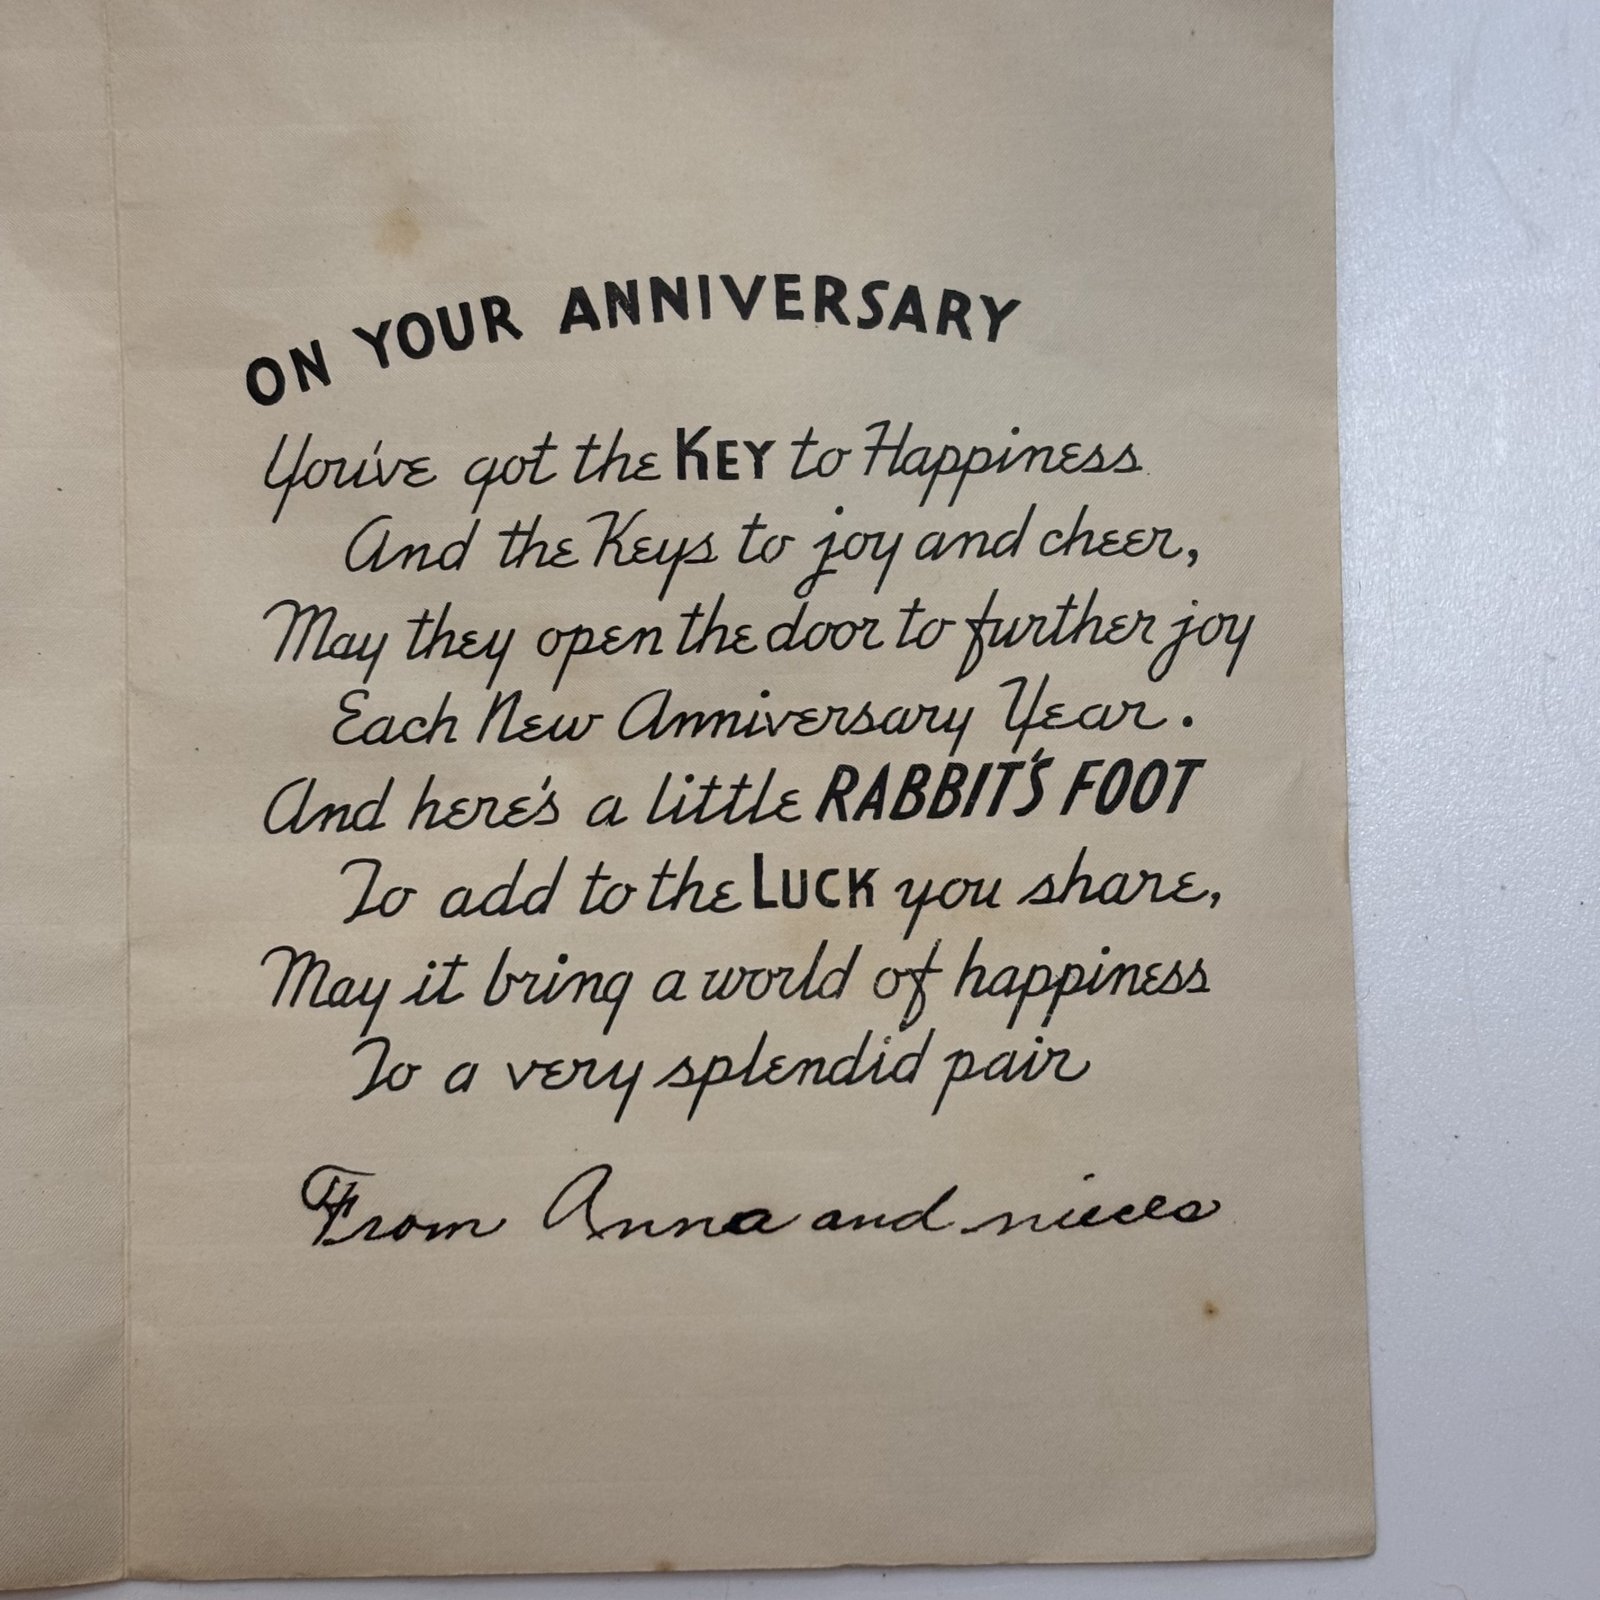 ON YOUR ANNIVERSARY
You've got the KEY to Happiness
And the Keys to joy and cheer,
May they open the door to further joy
Each New Anniversary Year.
And here's a little RABBIT'S FOOT
To add to the LUCK you share,
May it bring a world of happiness
To a very splendid pair
From Anna and nieces